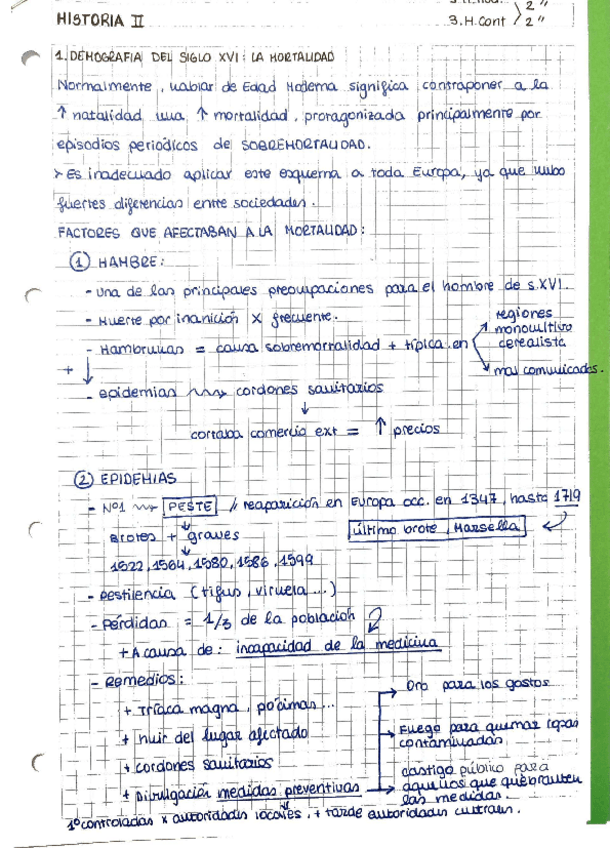 HISTORIA II
3. H. Cont 2"
2"
1. DEMOGRAFIA DEL SIGLO XVI: LA MORTALIDAD
Normalmente, hablar de Edad Moderna significa contraponer a la
↑ natalidad una ↑ mortalidad, protagonizada principalmente por
episodios periódicos de SOBREMORTALIDAD.
> Es inadecuado aplicar este esquema a toda Europa, ya que hubo
fuertes diferencias entre sociedades.
FACTORES QUE AFECTABAN A LA MORTALIDAD:
① HAMBRE:
- Una de las principales preocupaciones para el hombre de s.XVI.
- Muerte por inanición X frecuente.
- Hambrunas = causa sobremortalidad + típica en
regiones monocultivo cerealista
mal comunicadas.
+
- epidemias → cordones sanitarios
↓
cortaba comercio ext = ↑ precios
② EPIDEMIAS
- Nº1 → PESTE // reaparición en Europa occ. en 1347, hasta 1719
Brotes + graves
último brote, Marsella
1522, 1564, 1580, 1586, 1599
- Pestilencia (tifus, viruela...)
- Pérdidas = 1/3 de la población
+ A causa de: incapacidad de la medicina
- Remedios:
+ Tríaca magna, pócimas...
+ huir del lugar afectado
+ cordones sanitarios
+ Divulgación medidas preventivas
→ Oro para los gastos
→ Fuego para quemar ropas
contaminadas
castigo público para
→ aquellos que quebranten
las medidas.
1º controladas x autoridades locales, + tarde autoridades